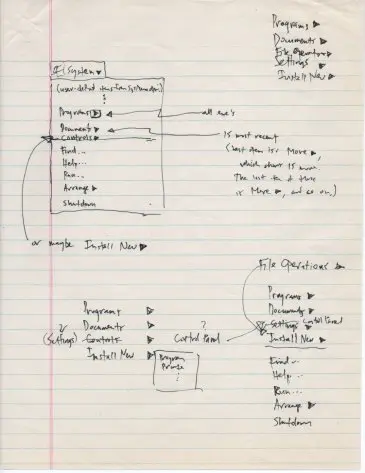 Programs ▶
Documents ▶
File Operations ▶
Settings ▶
Install New ▶
System ▼
Programs ▶
all exe's
Documents ▶
15 most recent
Controls ▶
(last item is More ▶,
which shows 15 more.
The last item of that
is More ▶, and so on.)
Find...
Help...
Run...
Arrange ▶
Shutdown
or maybe Install New ▶
File Operations ▶
Programs ▶
Documents ▶
Settings Control Panel
Install New ▶
Find...
Help...
Run...
Arrange ▶
Shutdown
Programs ▶
?
Documents ▶
(Settings) Controls ▶
?
Control Panel
Install New ▶
Program